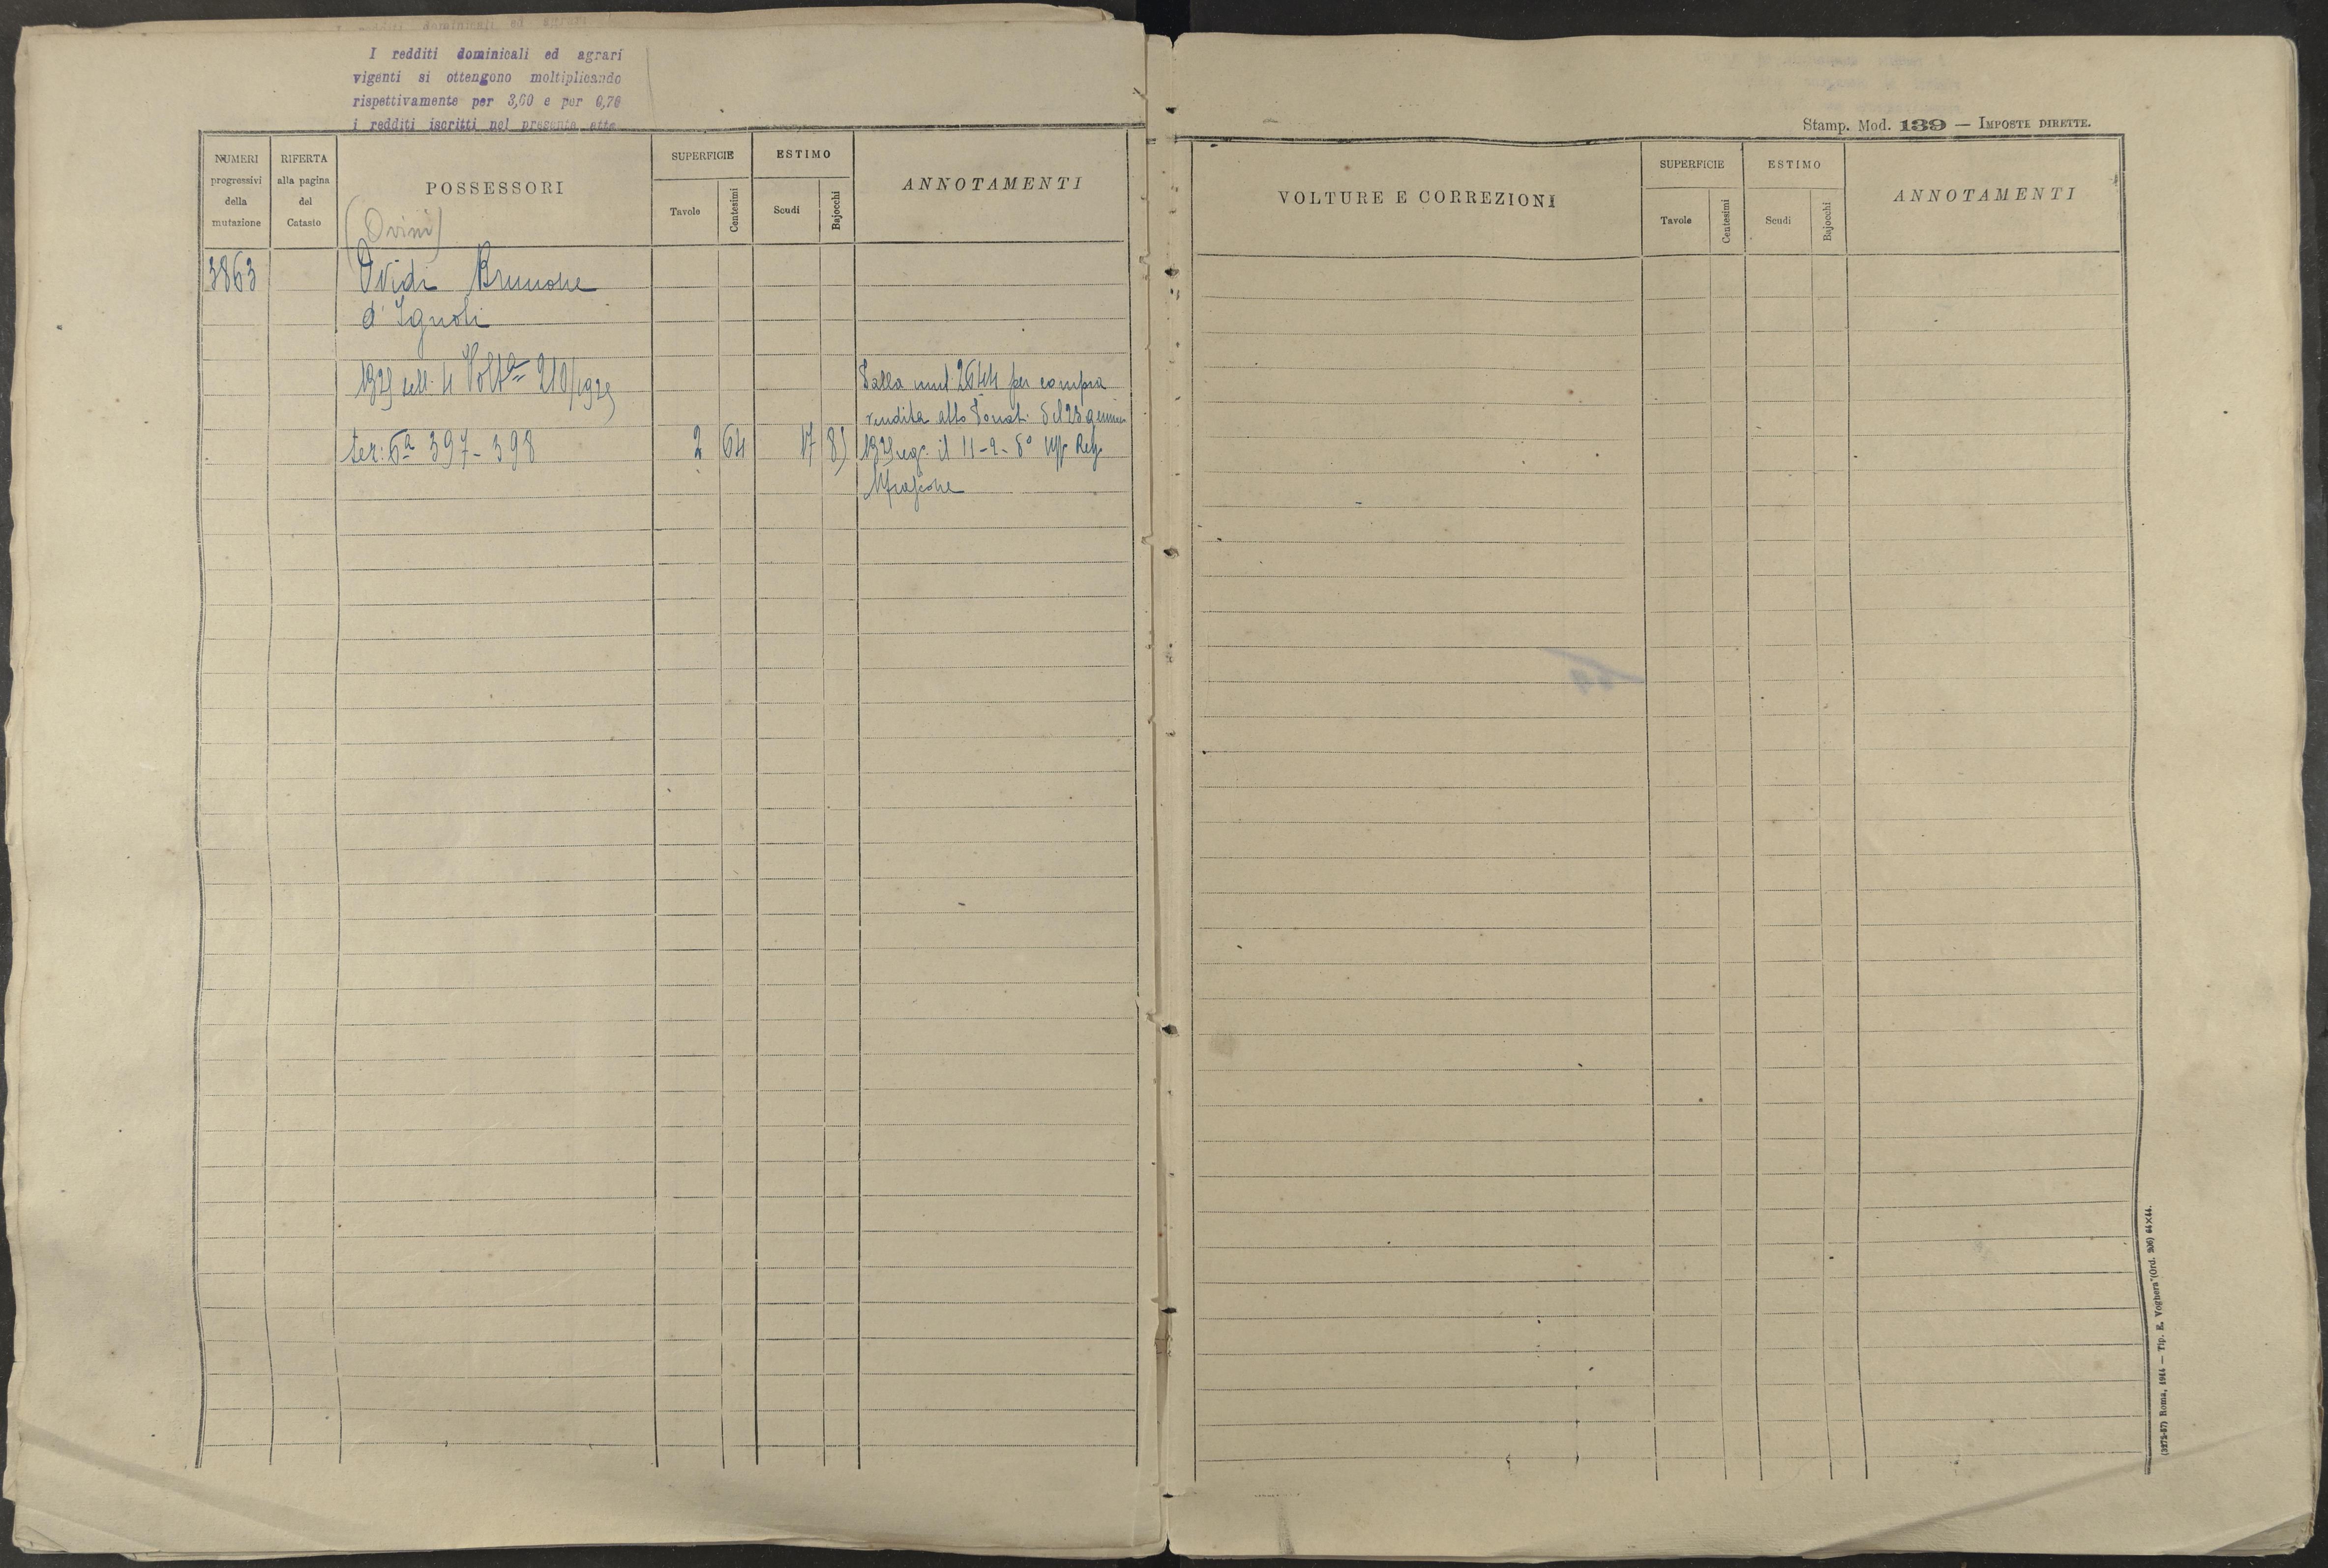 I redditi dominicali ed agrari
vigenti si ottengono moltiplicando
rispettivamente per 3,60 e per 0,70
i redditi iscritti nel presente atto
NUMERI progressivi della mutazione
RIFERTA alla pagina del Catasto
POSSESSORI
SUPERFICIE
Tavole
Centesimi
ESTIMO
Scudi
Bajocchi
ANNOTAMENTI
(Ovini)
3863
Ovidi Brunone
d' Ignoti
1929 Volta 210/1929
Dalla mut. 2644 per compra
vendita atto Donat. del 23
ter: 6a 397 - 398
2 64 17 89
1929 reg. il 11-2- d° Uff Reg
Stamp. Mod. 139 — IMPOSTE DIRETTE.
VOLTURE E CORREZIONI
SUPERFICIE
Tavole
Centesimi
ESTIMO
Scudi
Bajocchi
ANNOTAMENTI
(3272-57) Roma, 1914 — Tip. E. Voghera (Ord. 206) 64×44.